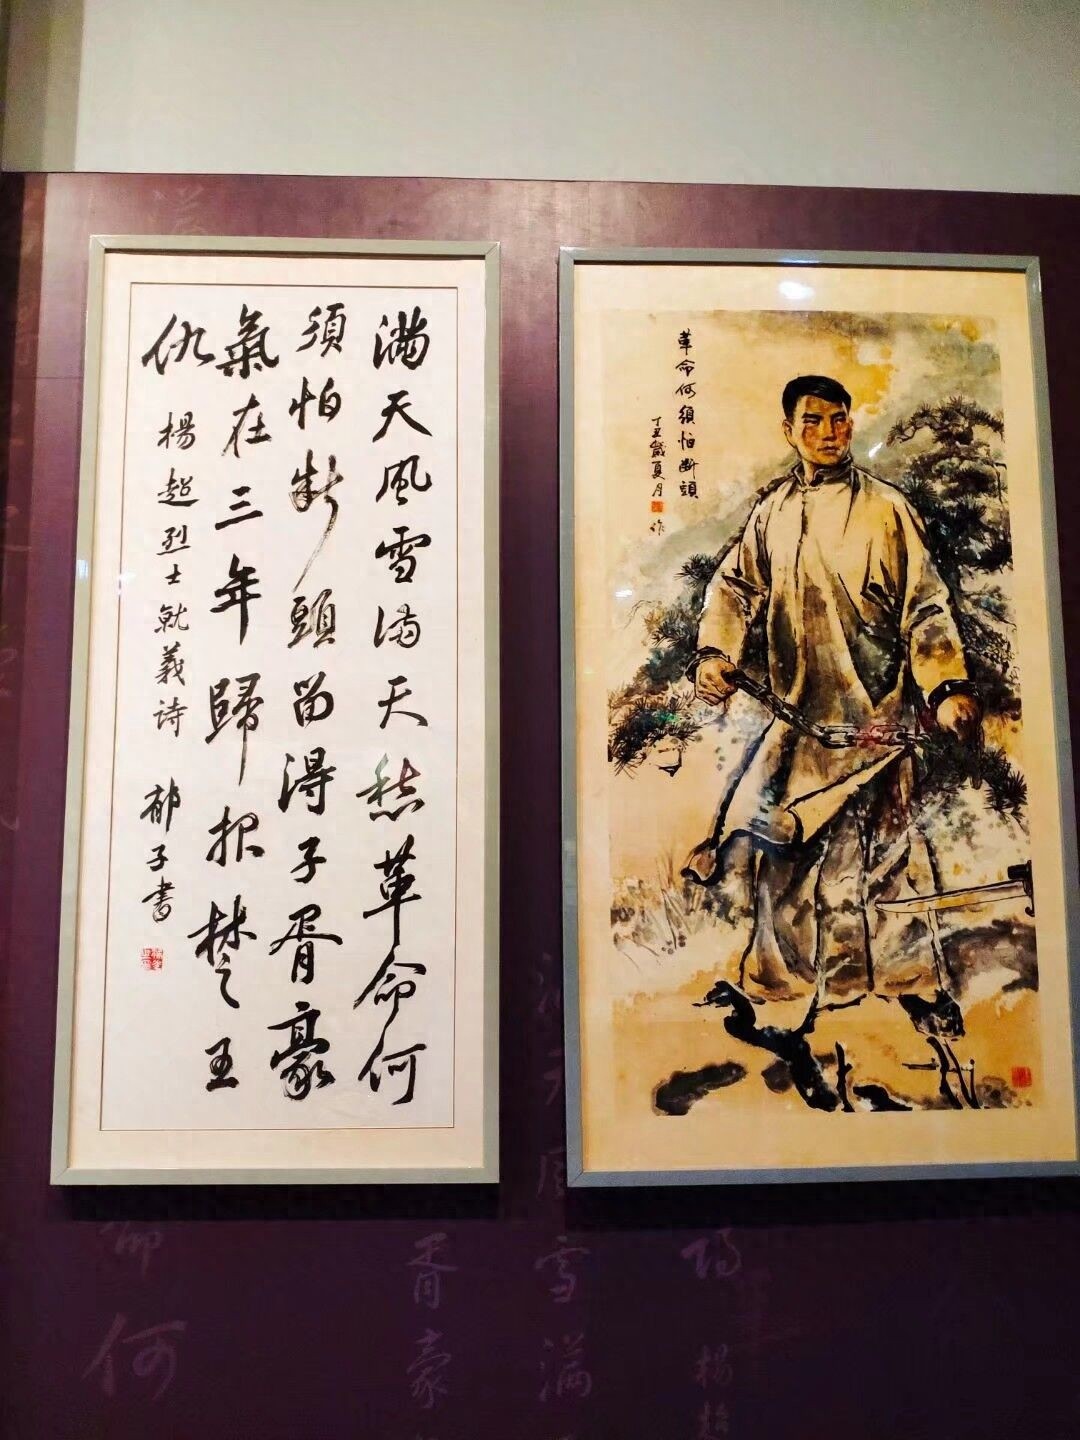 滿天風雪滿天愁革命何
須怕斷頭留得子胥豪
氣在三年歸报楚王
仇
楊超烈士就義诗 郁子書
革命何須怕断頭
丁丑歲夏月 作
何
胥豪
雪滿
楊超